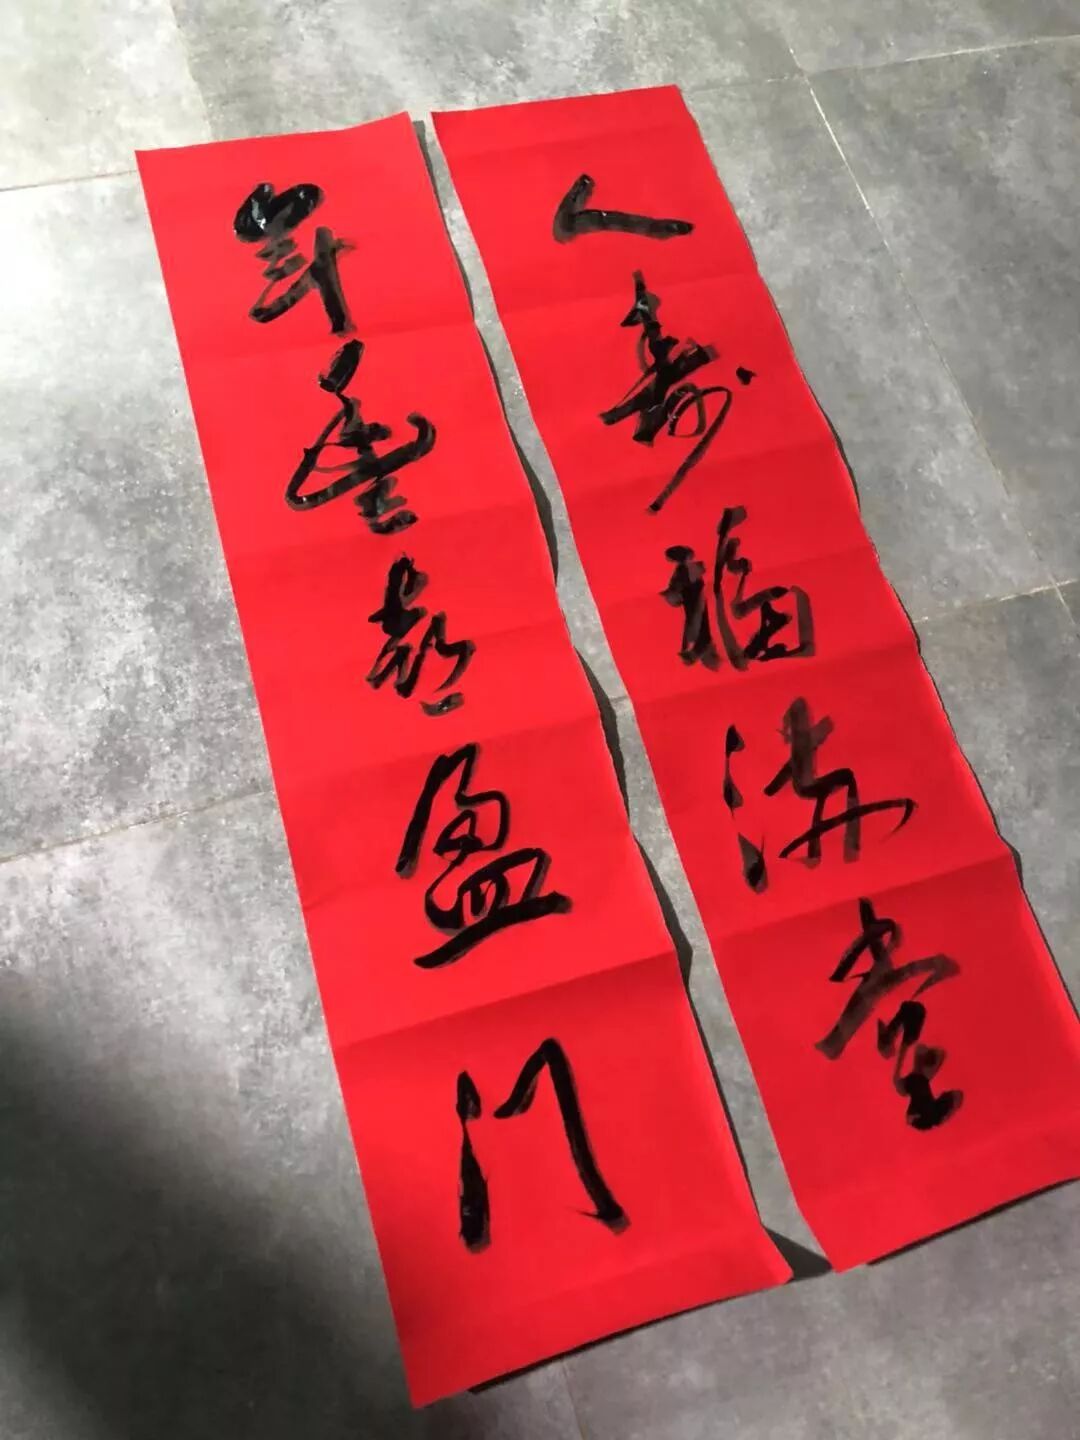 人寿福满堂
年豐喜盈门